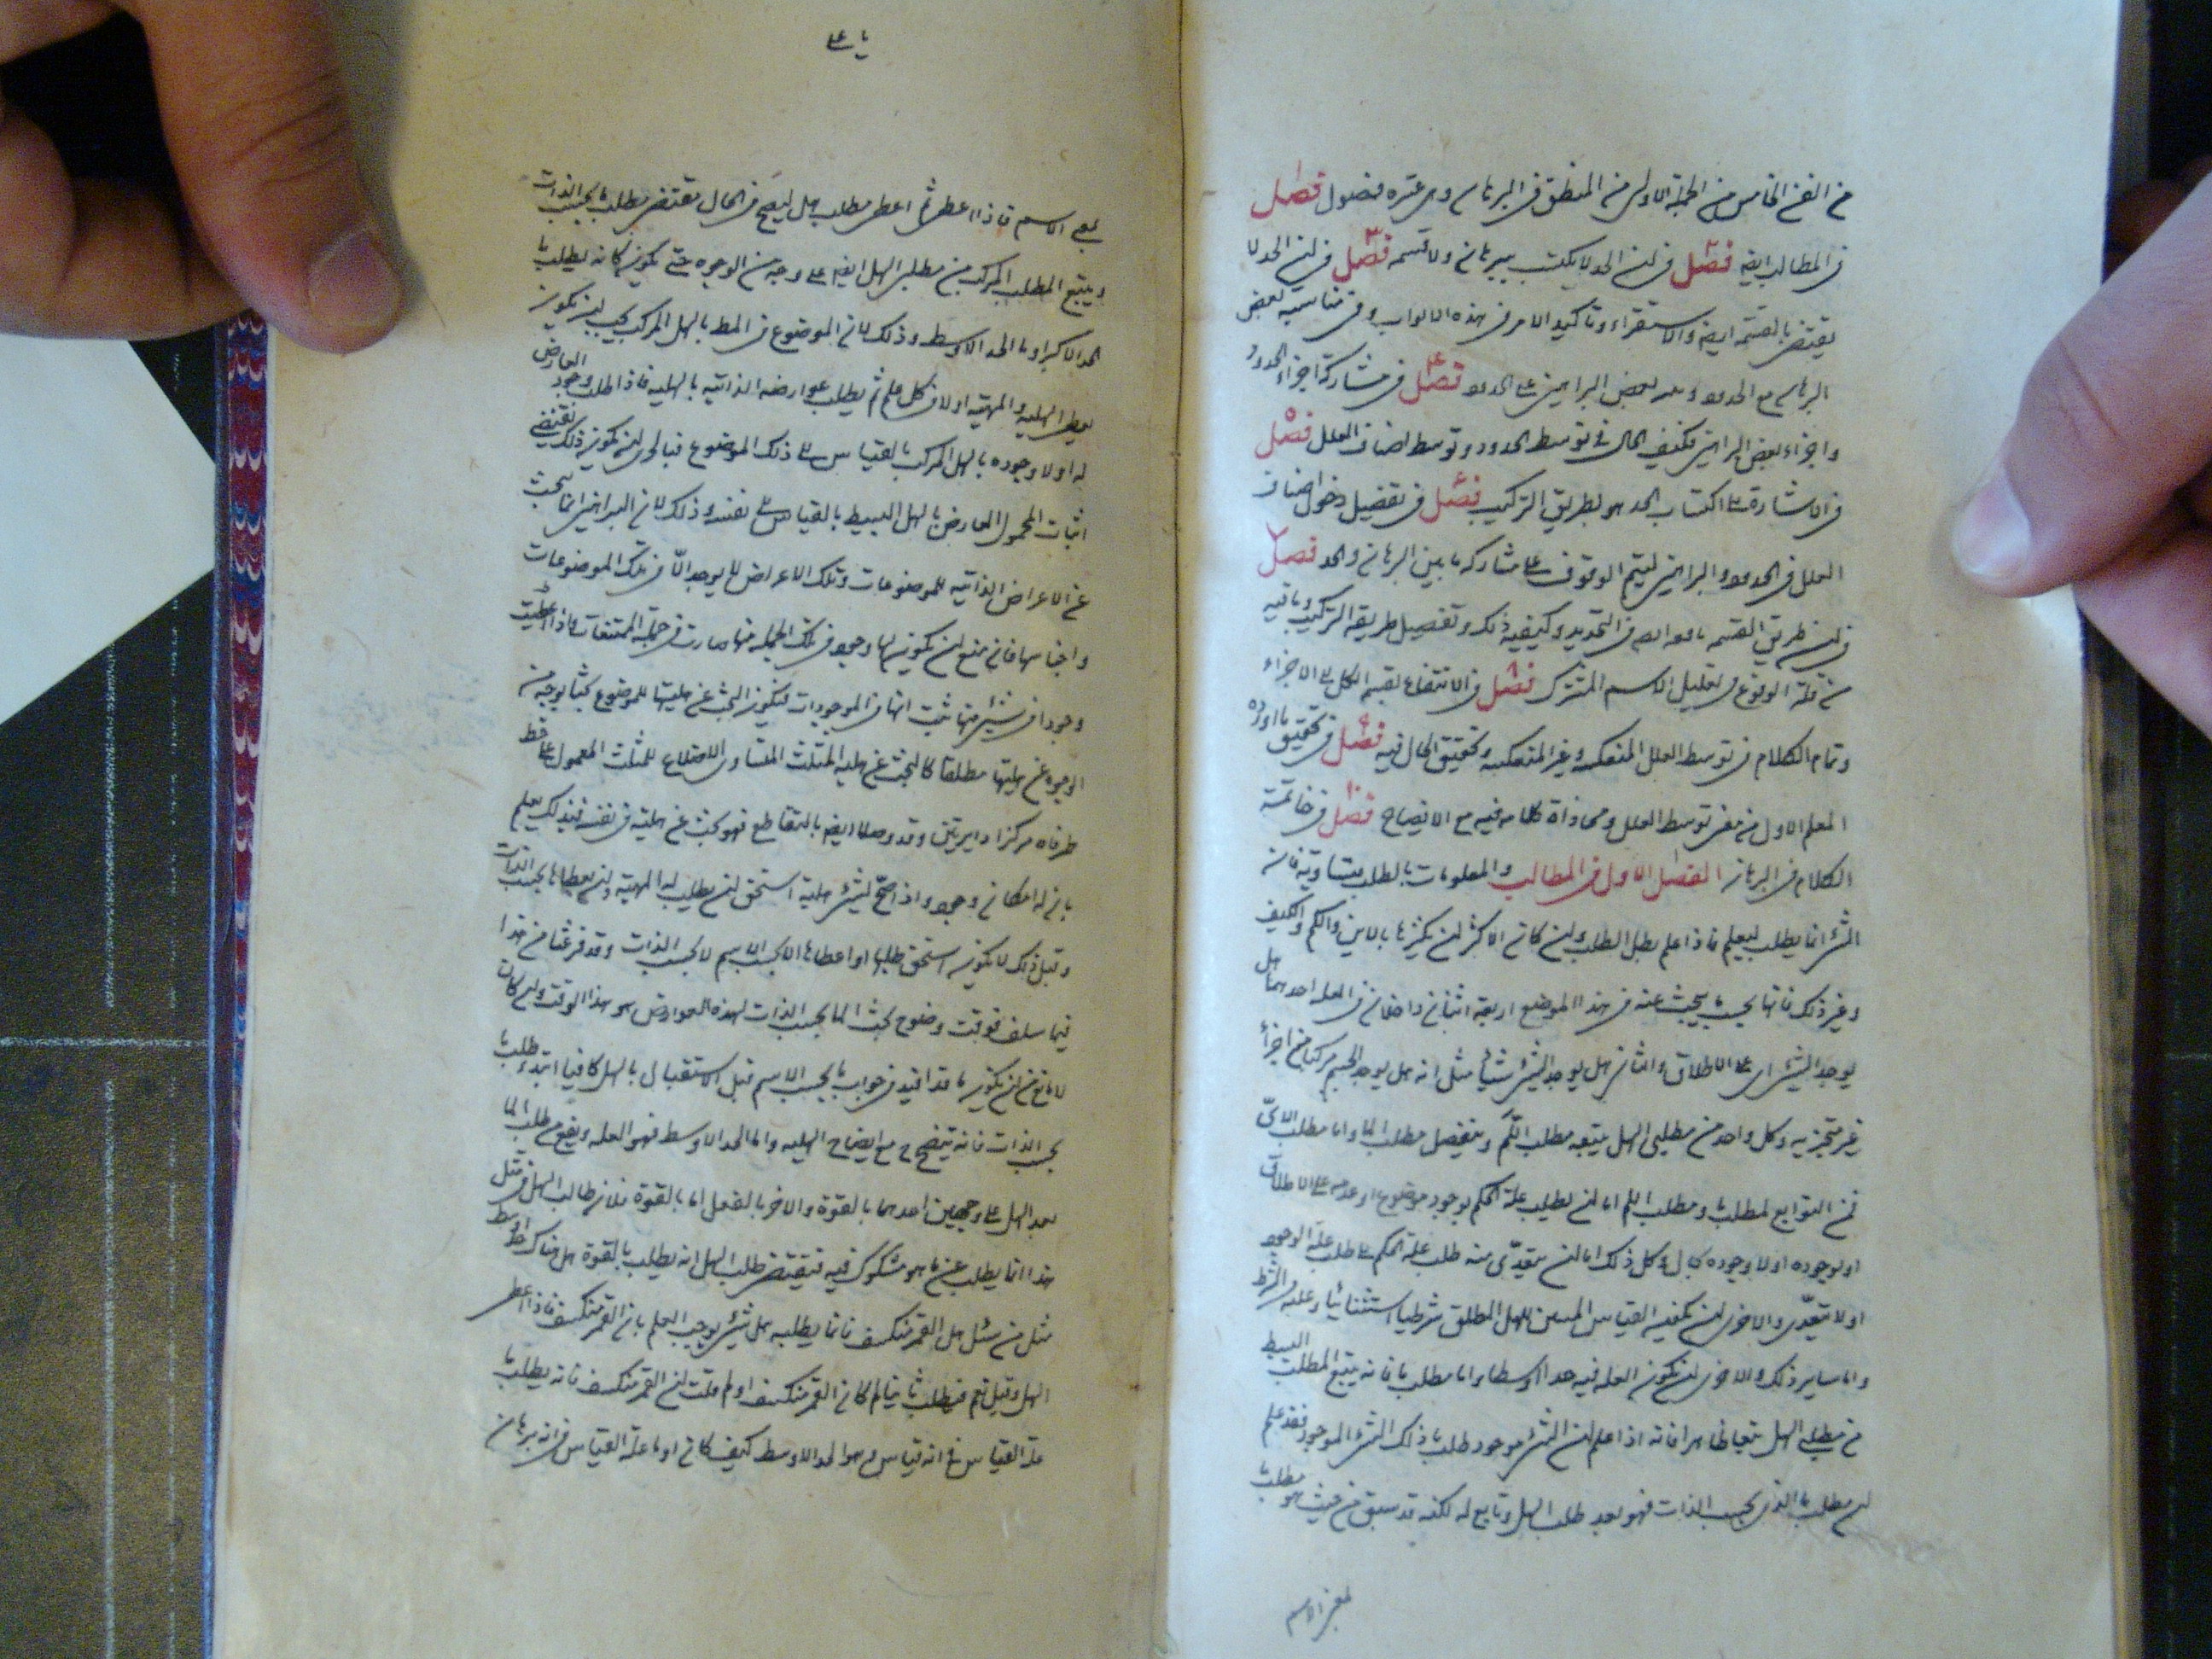 من الفن الخامس من الجملة الاولى من المنطق في البرهان وهي عشره فصول فصل
في المطالب ايضا فصل في ان الحد لا يكتسب ببرهان ولا قسمه فصل في ان الحد لا
يقتنص بالقسمه ايضا والاستقراء وتاكيد الامر في هذه الابواب وفي مناسبة بعض
البرهان مع الحدود بعض البراهين على الحدود فصل في مشاركة اجزاء الحدود
واجزاء بعض البراهين وكيف الحال في توسط الحدود وتوسط اصناف العلل فصل
في الاشارة الى اكتساب الحد هو بطريق التركيب فصل في تفصيل دخول اصناف
العلل في الحدود والبراهين ليتم الوقوف على مشاركة ما بين البرهان والحد فصل
في ان طريق القسمه نافعه ايضا في التحديد وكيفيه ذلك وتفصيل طريقه التركيب وما فيه
من قلة الوقوع في تحليل الاسم المشترك فصل في الانتفاع بقسمه الكل الى الاجزاء
وتمام الكلام في توسط العلل المنعكسه وغير المنعكسه وتحقيق الحال فيه فصل في تحقيق ما اورده
المعلم الاول في معنى توسط العلل ومحاذاة كلامه فيه مع الايضاح فصل في خاتمة
الكلام في البرهان الفصل الاول في المطالب والمعلومات بالطلب متساوية فان
الشئ انما يطلب ليعلم فاذا علم بطل الطلب وان كان الاكثر ان يكثرها بالاين والكم والكيف
وغير ذلك فانها بحسب ما يبحث عنه في هذا الموضع اربعة اثنان داخلان في الهل احدهما هل
يوجد الشئ اي على الاطلاق والثاني هل يوجد الشئ شيئا مثل انه هل يوجد الجسم مركبا من اجزاء
غير متجزيه وكل واحد من مطلبي الهل يتبعه مطلب اللم ويتفصل مطلب الما واما مطلب الاي
فمن التوابع لمطلب ما ومطلب اللم اما ان يطلب علة الحكم بوجود موضوع او عدمه على الاطلاق
او بوجوده او لا وجوده بحال وكل ذلك اما ان يتعدى منه طلب علة الحكم الى طلب علة الوجود
او لا يتعدى والاخرى ان يكون القياس المبين للهل المطلق شرطيا استثنائيا وعلته الشرط
واما ساير ذلك والاخرى ان يكون العله فيه حدا اوسطا واما مطلب ما فانه يتبع المطلب البسيط
من مطلبي الهل اتباعا ظاهرا فانه اذا علم ان الشئ موجود طلب ما ذلك الشئ الموجود فقد علم
ان مطلب ما الذي بحسب الذات فهو بعد طلب الهل وتابع له لكنه قد سبق من حيث هو مطلب
لمعنى الاسم
ياء
لمعنى الاسم فاذا اعطى ثم اعطى مطلب هل ليصح في الحال مقتضى مطلب ما بحسب الذات
ويتبع المطلب المركب من مطلبي الهل ايضا على وجه من الوجوه حتى يكون كانه يطلب ما
الحد الاكبر او ما الحد الاوسط وذلك لان الموضوع في المط بالهل المركب يجب ان يكون
يعطى الهليه والمهيه اولا في كل علم ثم يطلب عوارضه الذاتيه بالهليه فاذا طلب وجود العارض
له اولا وجوده بالهل المركب بالقياس الى ذلك الموضوع فبالحرى ان يكون ذلك يقتضي
اثبات المحمول العارض بالهل البسيط بالقياس الى نفسه وذلك لان البراهين انما تبحث
عن الاعراض الذاتيه للموضوعات وتلك الاعراض لا يوجد الا في تلك الموضوعات
واجناسها فان منع ان يكون لها وجود في تلك الجمله منها صارت في جملة الممتنعات واذا اعطيت
وجودا في شئ منها ثبت انها في الموجودات فيكون البحث عن هليتها للموضوع بحثا بوجه من
الوجوه عن هليتها مطلقا كالبحث عن هليه المثلث المتساوي الاضلاع للمثلث المعمول على خط
طرفاه مركزا دايرتين وقد وصلا ايضا بالتقاطع فهو بحث عن هليته في نفسه فبذلك يعلم
بان له امكان وجود واذا صح لشئ هليه استحق ان يطلب له المهيه وان يعطاها بحسب الذات
وقبل ذلك لا يكون استحق طلبها او اعطاها الا بحسب الاسم لا بحسب الذات وقد فرغنا من هذا
فيما سلف فوقت وضوح بحث الما بحسب الذات لهذه العوارض هو هذا الوقت وان كان
لا مانع من ان يكون ما قد افيد في جواب ما بحسب الاسم قبل الاستقبال بالهل كافيا ابتداء طلب ما
بحسب الذات فانه يتضح ح مع ايضاح الهليه واما الحد الاوسط فهو العله ويقع طلب الما
بعد الهل على وجهين احدهما بالقوة والاخر بالفعل اما بالقوة فلان طالب الهل في مثل
هذا انما يطلب عن ما هو مشكوك فيه فيقتضى طلب الهل انه يطلب بالقوة هل هناك حد اوسط
مثل من سئل هل القمر منكسف فانما يطلبه هل شئ يوجب العلم بان القمر منكسف فاذا اعطى
الهل وقيل نعم فيطلب ثانيا لم كان القمر منكسف او لم قلت ان القمر منكسف فانه يطلب ما
علة القياس في انه قياس وهو الحد الاوسط كيف كان او ما علة القياس في انه برهان